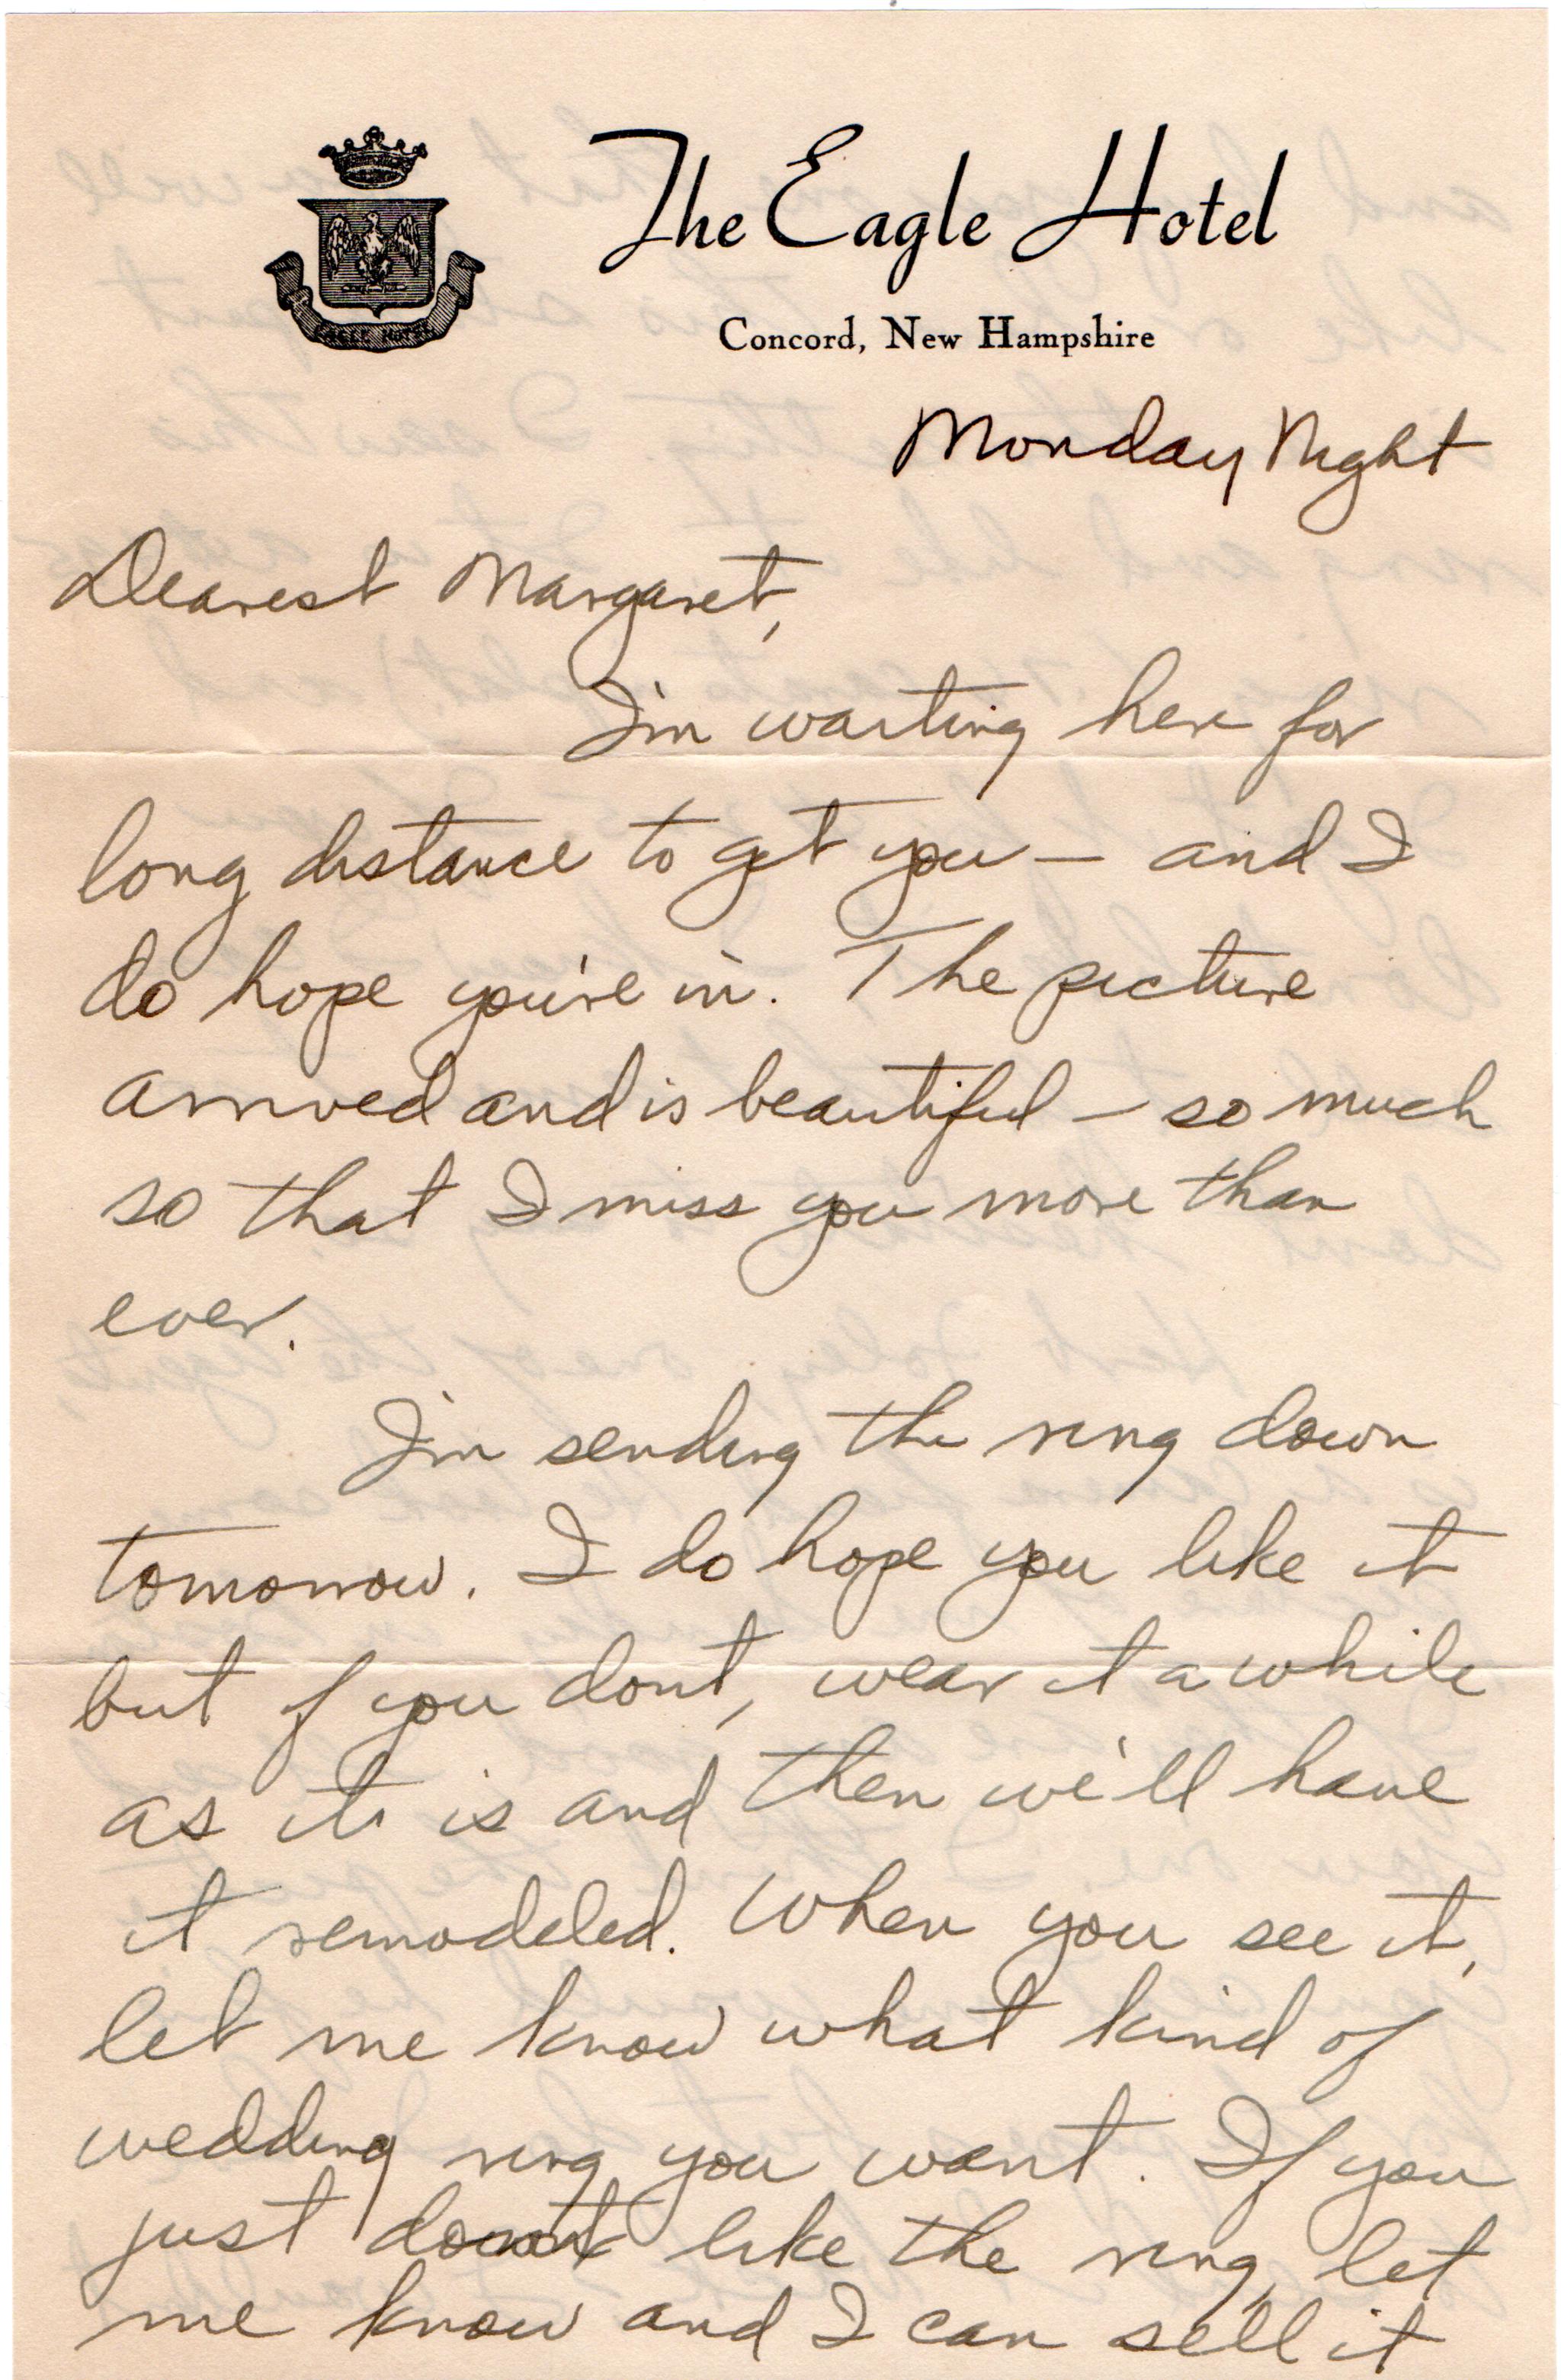 The Eagle Hotel
Concord, New Hampshire
Monday Night
Dearest Margaret,
I'm waiting here for
long distance to get you — and I
do hope you're in. The picture
arrived and is beautiful — so much
so that I miss you more than
ever.
I'm sending the ring down
tomorrow. I do hope you like it
but if you dont, wear it a while
as it is and then we'll have
it remodeled. When you see it,
let me know what kind of
wedding ring you want. If you
just don't like the ring, let
me know and I can sell it